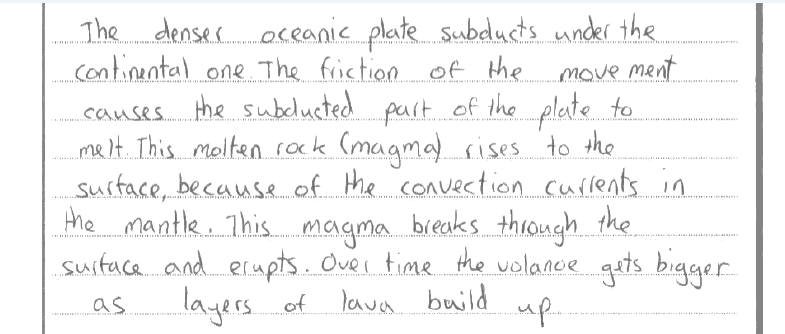 The denser oceanic plate subducts under the
continental one. The friction of the move ment
causes the subducted part of the plate to
melt. This molten rock (magma) rises to the
surface, because of the convection currents in
the mantle. This magma breaks through the
surface and erupts. Over time the volanoe gets bigger
as layers of lava build up.